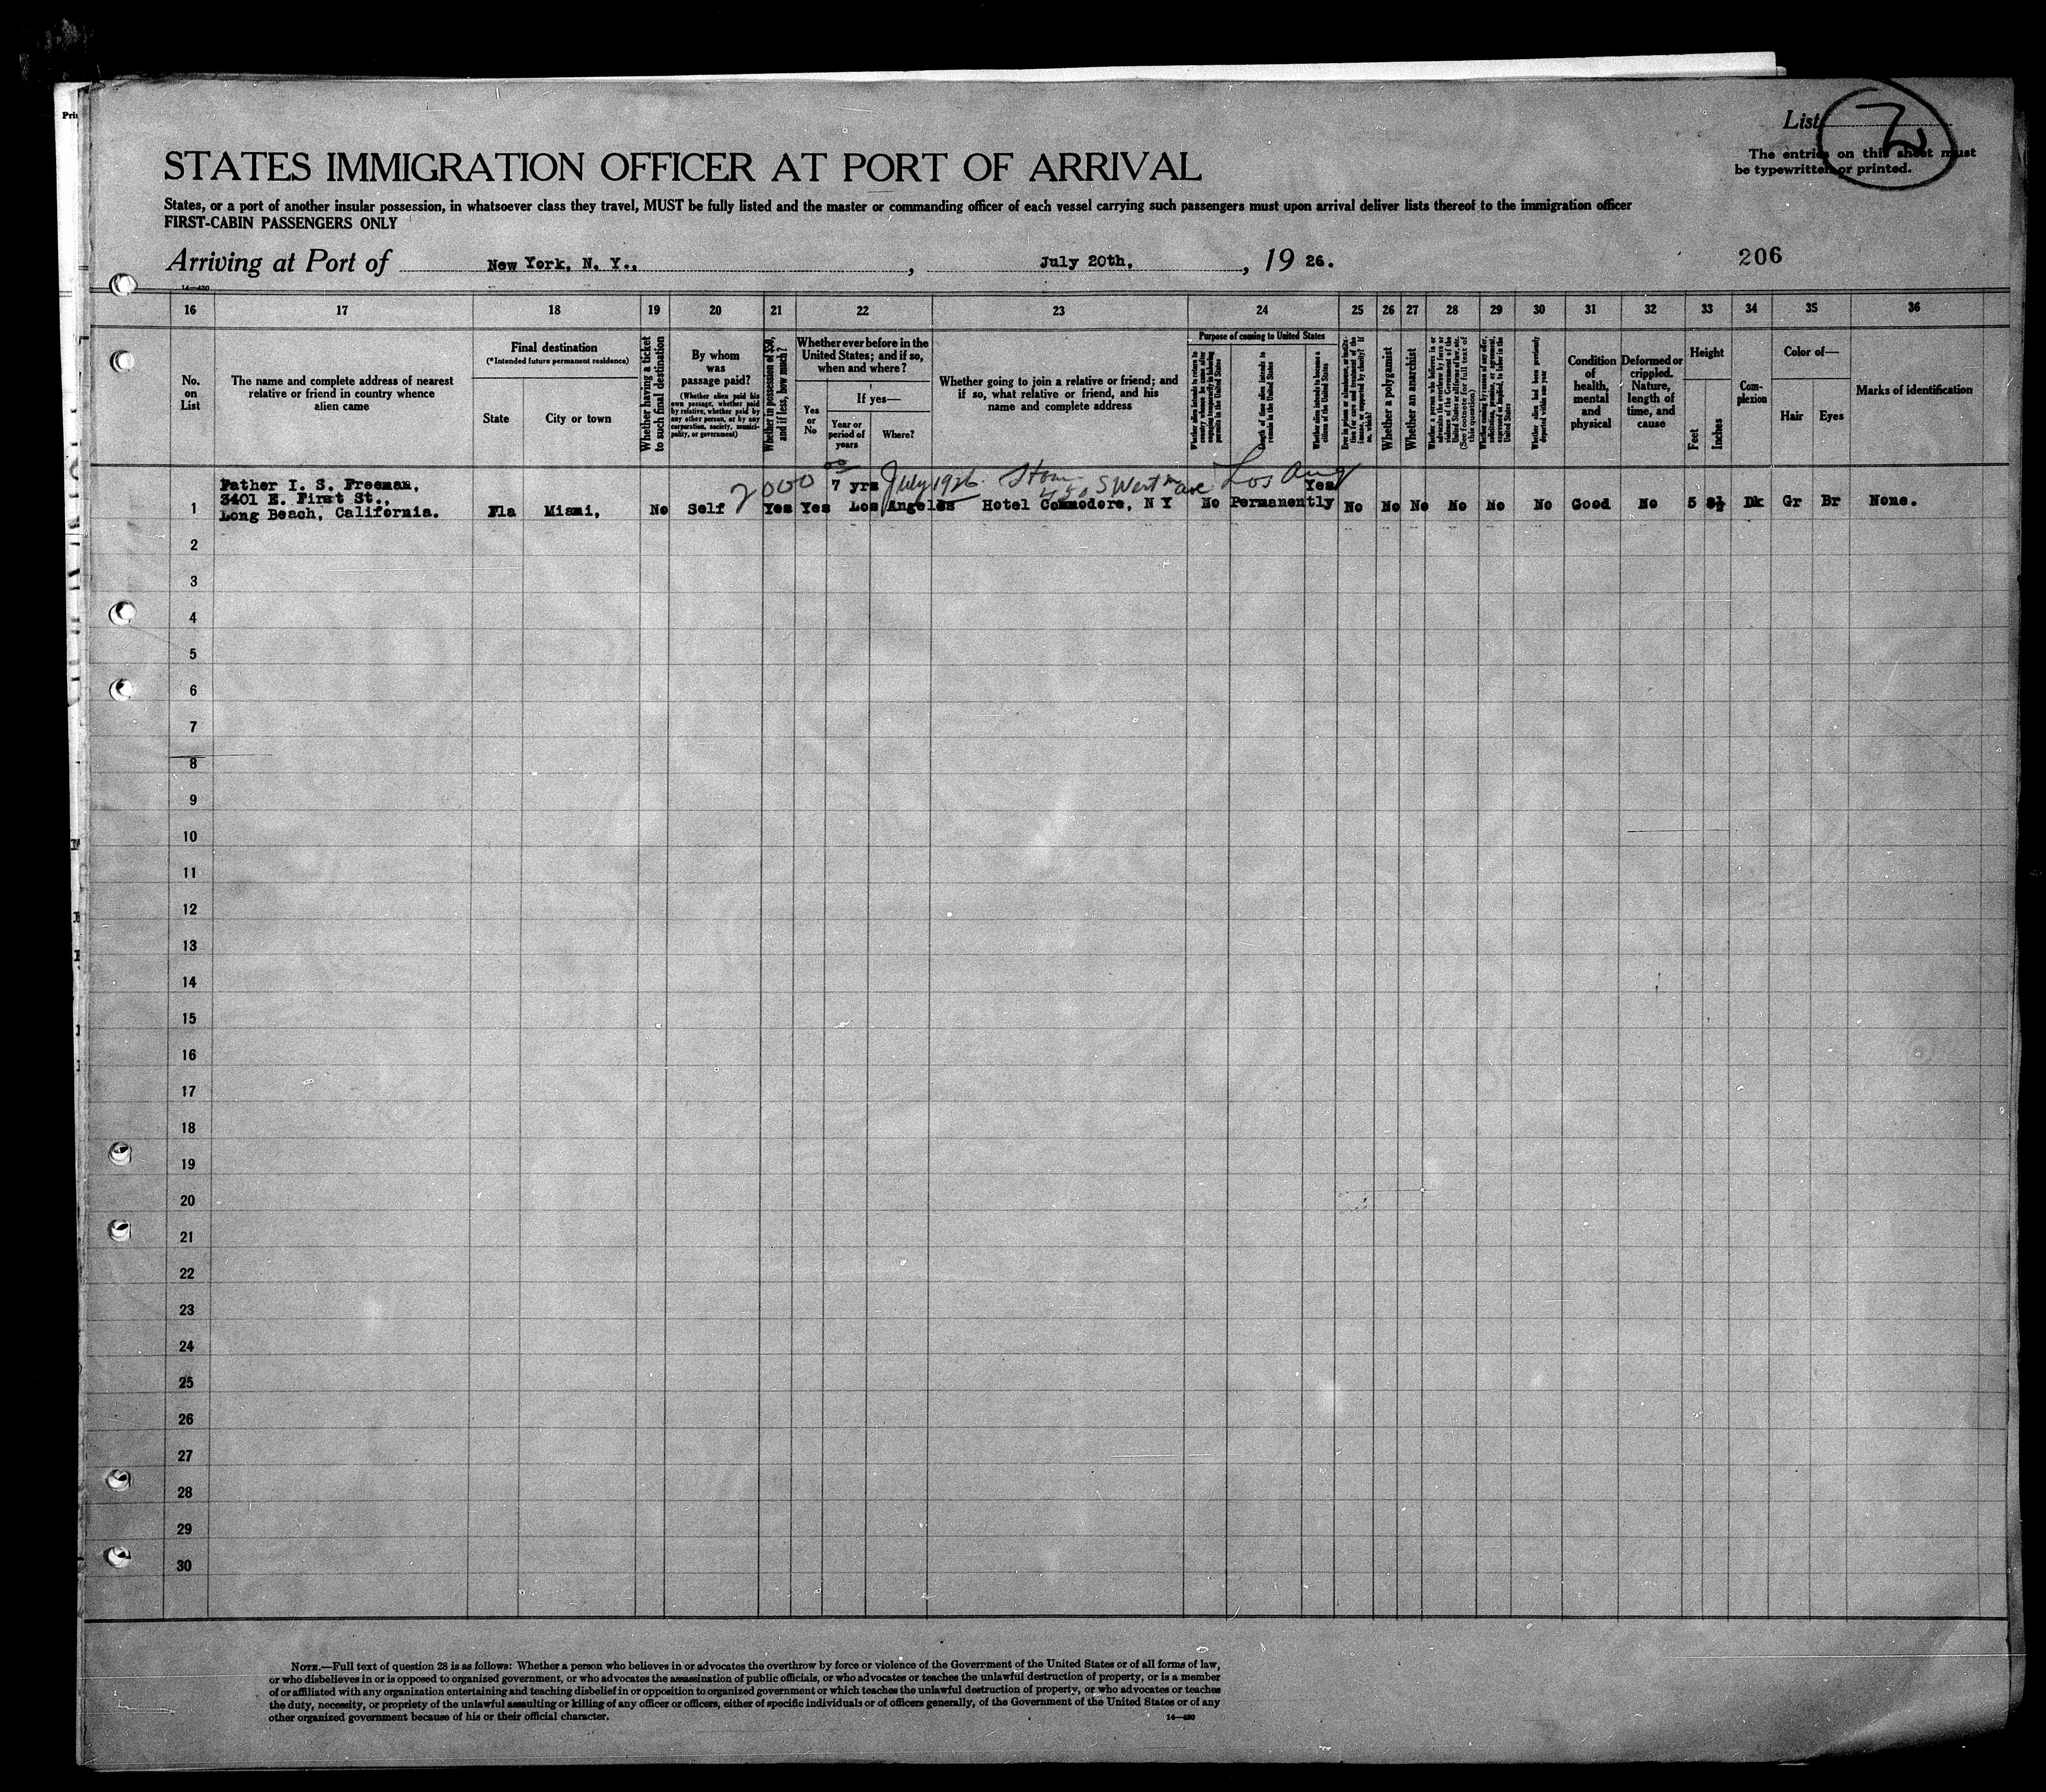 Pri
List 2
The entries on this sheet must
be typewritten or printed.
STATES IMMIGRATION OFFICER AT PORT OF ARRIVAL
States, or a port of another insular possession, in whatsoever class they travel, MUST be fully listed and the master or commanding officer of each vessel carrying such passengers must upon arrival deliver lists thereof to the immigration officer
FIRST-CABIN PASSENGERS ONLY
Arriving at Port of New York, N. Y., , July 20th, , 19 26.
206
14—430
16 17 18 19 20 21 22 23 24 25 26 27 28 29 30 31 32 33 34 35 36
No.
on
List
The name and complete address of nearest
relative or friend in country whence
alien came
Final destination
(*Intended future permanent residence)
State
City or town
Whether having a ticket
to such final destination
By whom
was
passage paid?
(Whether alien paid his
own passage, whether paid
by relative, whether paid by
any other person, or by any
corporation, society, munici-
pality, or government)
Whether in possession of $50,
and if less, how much?
Whether ever before in the
United States; and if so,
when and where?
Yes
or
No
If yes—
Year or
period of
years
Where?
Whether going to join a relative or friend; and
if so, what relative or friend, and his
name and complete address
Purpose of coming to United States
Whether alien intends to return to
country whence he came after
engaging temporarily in laboring
pursuits in the United States
Length of time alien intends to
remain in the United States
Whether alien intends to become a
citizen of the United States
Ever in prison or almshouse, or institu-
tion for care and treatment of the
insane, or supported by charity? If
so, which?
Whether a polygamist
Whether an anarchist
Whether a person who believes in or
advocates the overthrow by force or
violence of the Government of the
United States or all forms of law, etc.
(See footnote for full text of
this question)
Whether coming by reason of any offer,
solicitation, promise, or agreement,
expressed or implied, to labor in the
United States
Whether alien had been previously
deported within one year
Condition
of
health,
mental
and
physical
Deformed or
crippled.
Nature,
length of
time, and
cause
Height
Feet
Inches
Com-
plexion
Color of—
Hair
Eyes
Marks of identification
Father I. S. Freeman,
3401 E. First St.,
Long Beach, California.
1 Fla Miami, No Self 2000 00 Yes Yes 7 yrs July 1926 Los Angeles
Hotel Commodore, N Y No Permanently Yes No No No No No No Good No 5 8½ Dk Gr Br None.
Los Ang
2
3
4
5
6
7
8
9
10
11
12
13
14
15
16
17
18
19
20
21
22
23
24
25
26
27
28
29
30
NOTE.—Full text of question 28 is as follows: Whether a person who believes in or advocates the overthrow by force or violence of the Government of the United States or of all forms of law,
or who disbelieves in or is opposed to organized government, or who advocates the assassination of public officials, or who advocates or teaches the unlawful destruction of property, or is a member
of or affiliated with any organization entertaining and teaching disbelief in or opposition to organized government or which teaches the unlawful destruction of property, or who advocates or teaches
the duty, necessity, or propriety of the unlawful assaulting or killing of any officer or officers, either of specific individuals or of officers generally, of the Government of the United States or of any
other organized government because of his or their official character.
14—430